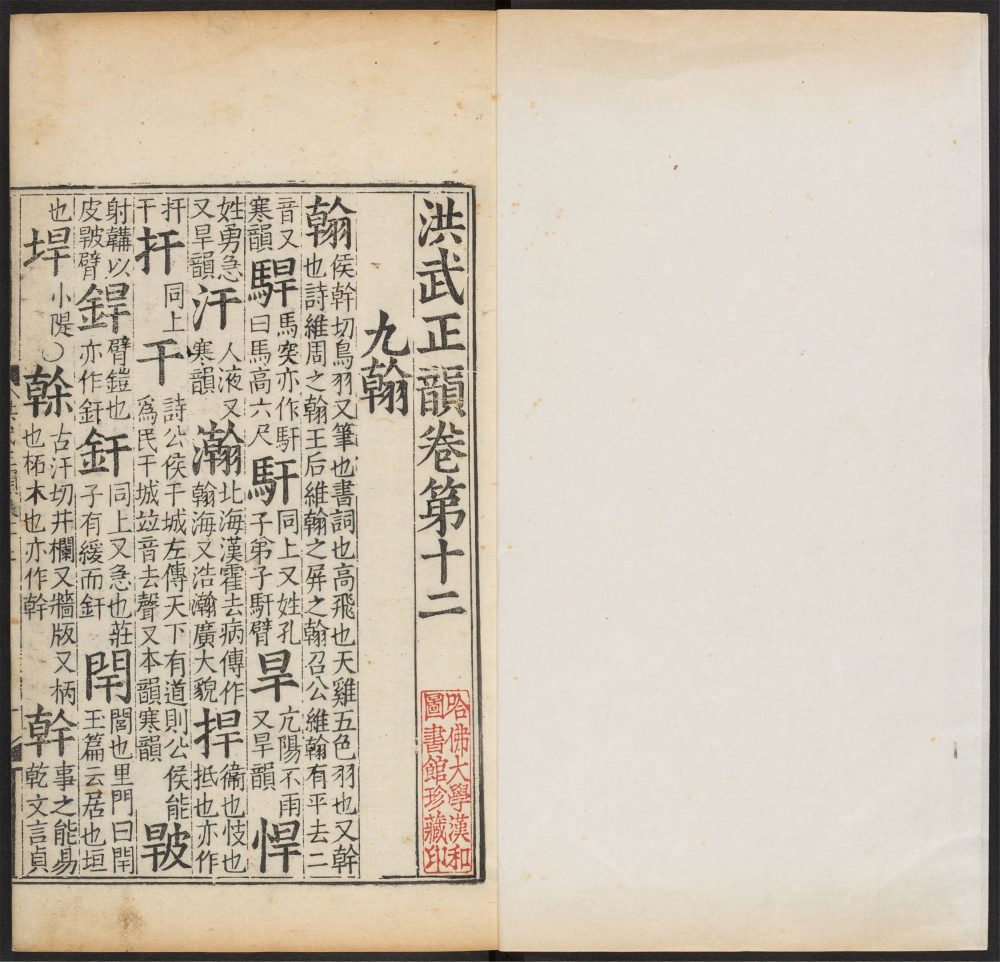 洪武正韻卷第十二
哈佛大學漢和
圖書館珍藏印
九翰
翰侯幹切鳥羽又筆也書詞也高飛也天雞五色羽也又幹也詩維周之翰王后維翰之屏之翰召公維翰有平去二
音又寒韻駻馬突亦作馯曰馬高六尺馯同上又姓孔子弟子馯臂旱亢陽不雨又旱韻悍
姓勇急又旱韻汗人液又寒韻瀚北海漢霍去病傳作翰海又浩瀚廣大貌捍衞也忮也抵也亦作
扞干扞同上干詩公侯干城左傳天下有道則公侯能爲民干城竝音去聲又本韻寒韻
射韝以皮臂銲臂鎧也亦作釬釬同上又急也莊子有緩而釬閈閻也里門曰閈玉篇云居也垣
也垾小隄〇榦古汗切井欄又牆版又柄也柘木也亦作幹幹事之能易乾文言貞